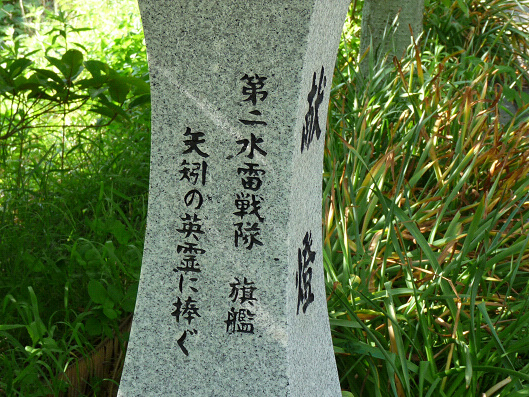 献燈
第二水雷戦隊 旗艦
矢矧の英霊に捧ぐ